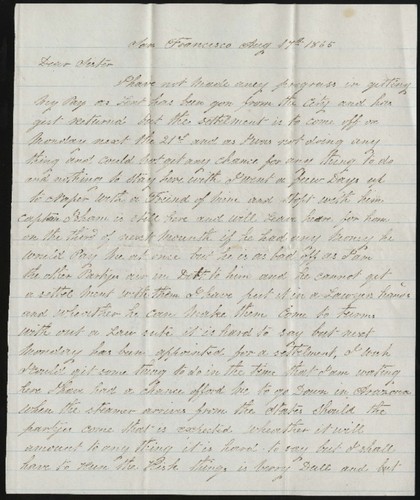 San Francisco Aug 17th 1865
Dear Sister
I have not made aney progress in getting
my Pay as Sent has been gon from the City and has
gist returned but the settelment is to come off on
Monday next the 21st and as I was not doing any
thing and could not get any chance for any thing to do
and nothing to stay here with I went a few Days up
to Napa with a Friend of mine and stopt with him
Captain is still here and will leave hear for home
on the third of next Mounth if he had any money he
would Pay me at once but he is as bad off as I am
the other Partys air in Det to him and he cannot get
a settelment with them I have put it in a Lawyers hands
and wheather he can make them come to terms
with out a Law sute it is hard to say but next
Monday has been appointed for a settelment, I wish
I could git some thing to do in the time that I am waiting
here I have had a chance offord me to go Down in Arazona
when the steamer arives from the States should the
partys come that is expected wheather it will
amount to any thing it is hard to say but I shall
have to run the Risk things is very Dull and but